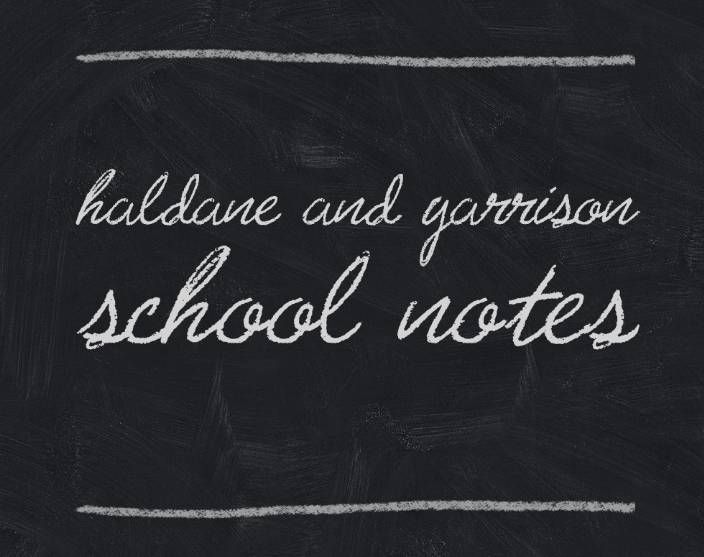 haldane and garrison
school notes